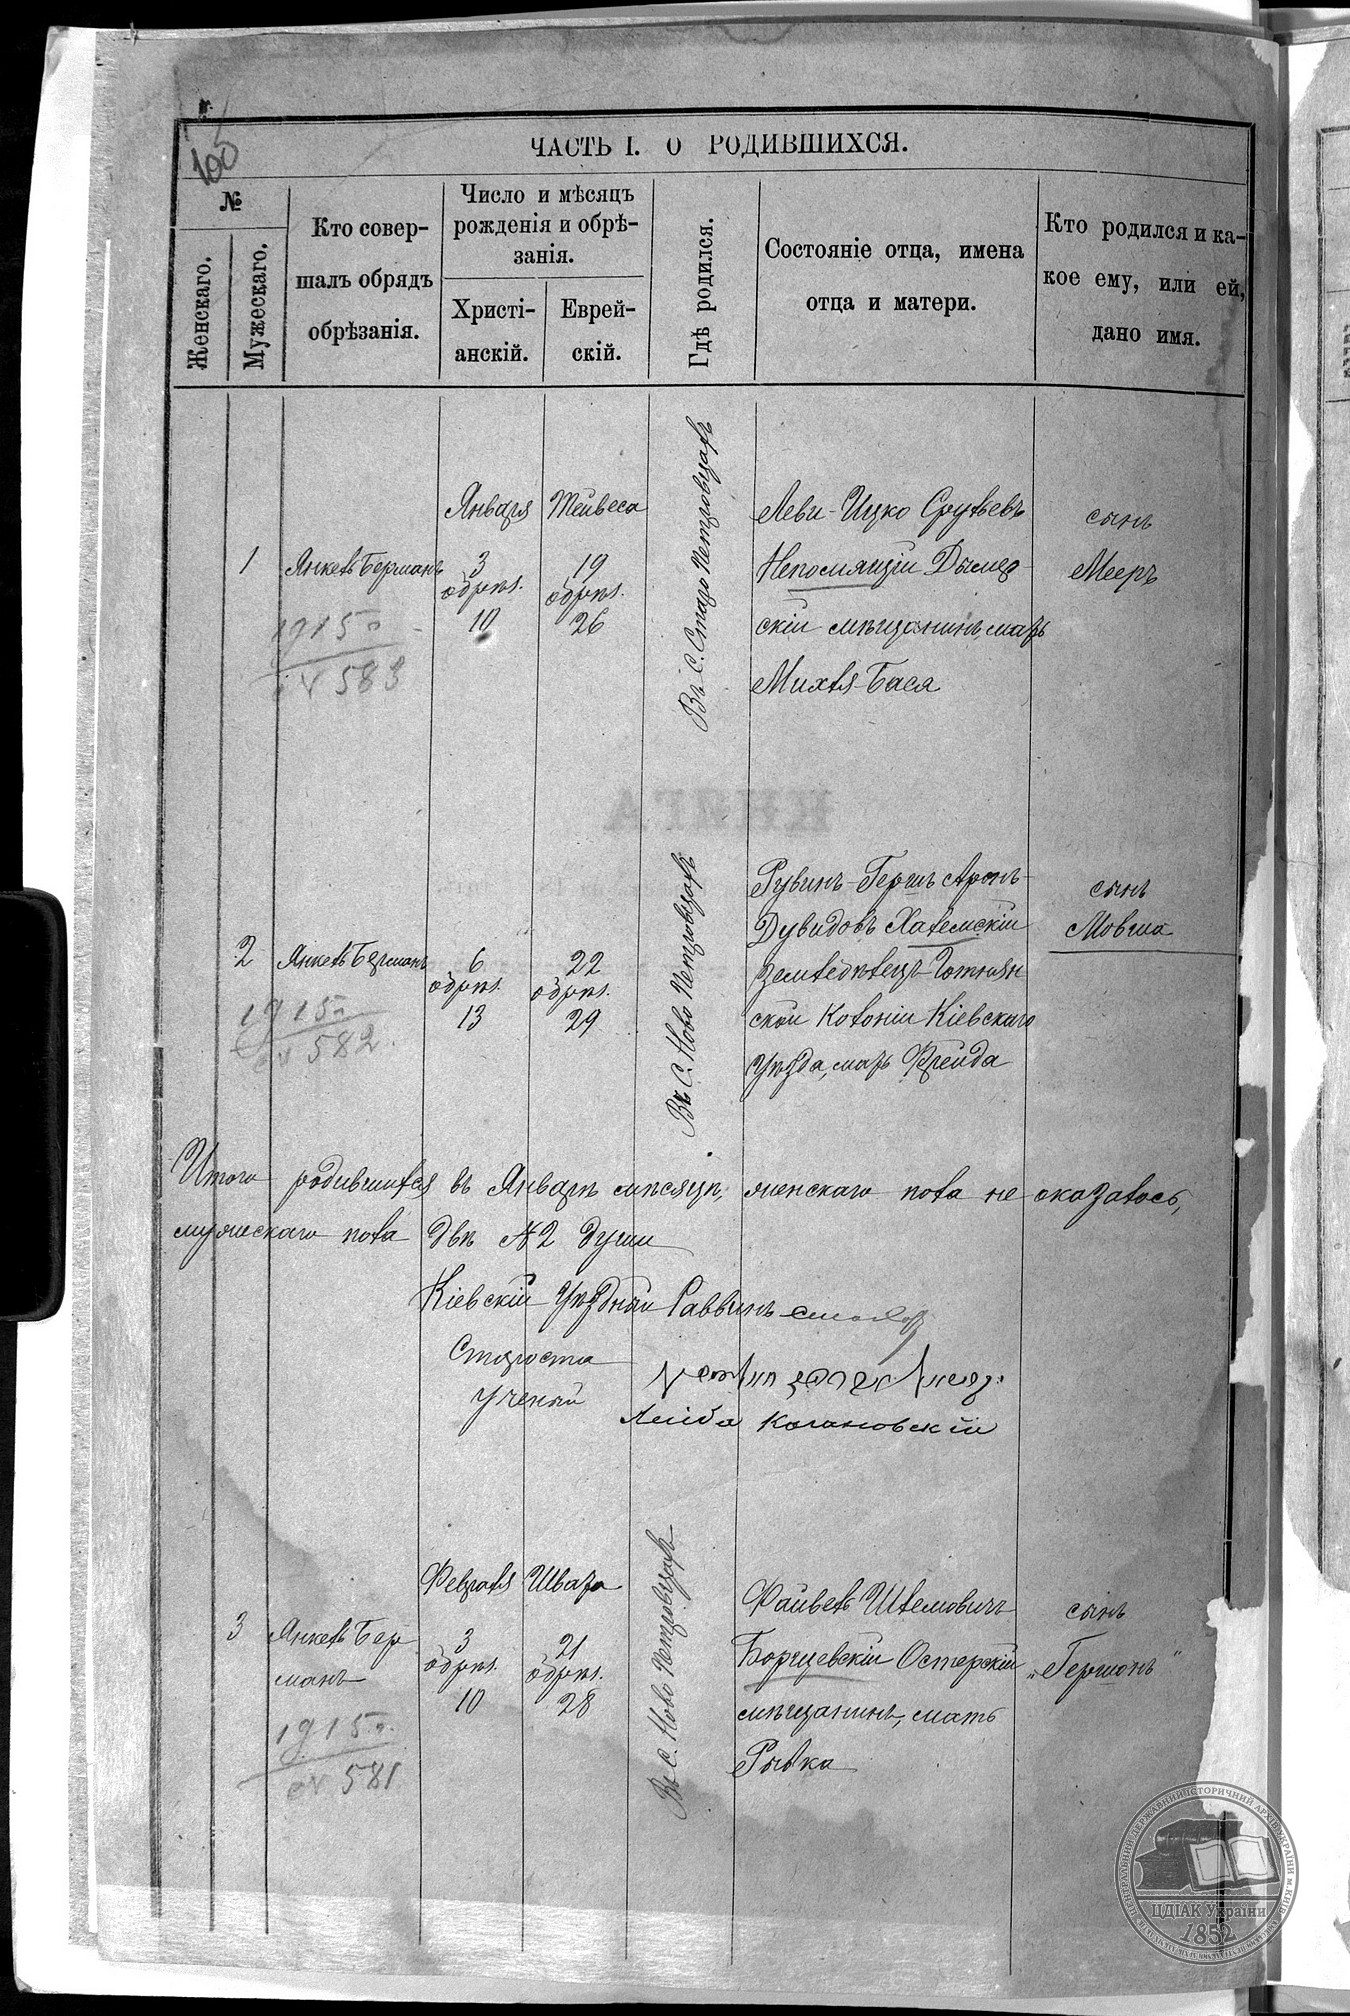 100
ЧАСТЬ I. О РОДИВШИХСЯ.
№
Женскаго.
Мужескаго.
Кто совер-
шалъ обрядъ
обрѣзанія.
Число и мѣсяцъ
рожденія и обрѣ-
занія.
Христі-
анскій.
Еврей-
скій.
Гдѣ родился.
Состояніе отца, имена
отца и матери.
Кто родился и ка-
кое ему, или ей,
дано имя.
Января
Тейвеса
1
Янкель Берманъ
3
обрѣз.
10
19
обрѣз.
26
Въ С. Старо Петровцахъ
Леви-Ицко Срулевъ
Непомлящій Дымер
скій мѣщанинъ, мать
Михля-Бася
сынъ
Мееръ
1915
№ 583
2
Янкель Берманъ
6
обрѣз.
13
22
обрѣз.
29
Въ С. Ново Петровцахъ
Рувинъ-Гершъ Аронъ-
Дувидовъ Халемскій
земледѣлецъ
ской Колоніи Кіевскаго
уѣзда, мать Фрейда
сынъ
Мовша
1915
№ 582
Итого родившихся въ Январѣ мѣсяцѣ, женскаго пола не оказалось,
мужескаго пола двѣ № 2 души
Кіевскій Уѣздный Раввинъ
Староста
Ученый
Лейба Кагановскій
Февраля
Швата
3
Янкель Бер
манъ
3
обрѣз.
10
21
обрѣз.
28
Въ С. Ново Петровцахъ
Файвель Шлемовичъ
Борщевскій Остерскій
мѣщанинъ, мать
Рывка
сынъ
„Гершонъ"
1915
№ 581
КНИГА
ЦЕНТРАЛЬНИЙ ДЕРЖАВНИЙ ІСТОРИЧНИЙ АРХІВ УКРАЇНИ м. КИЇВ
ЦДІАК України
1852